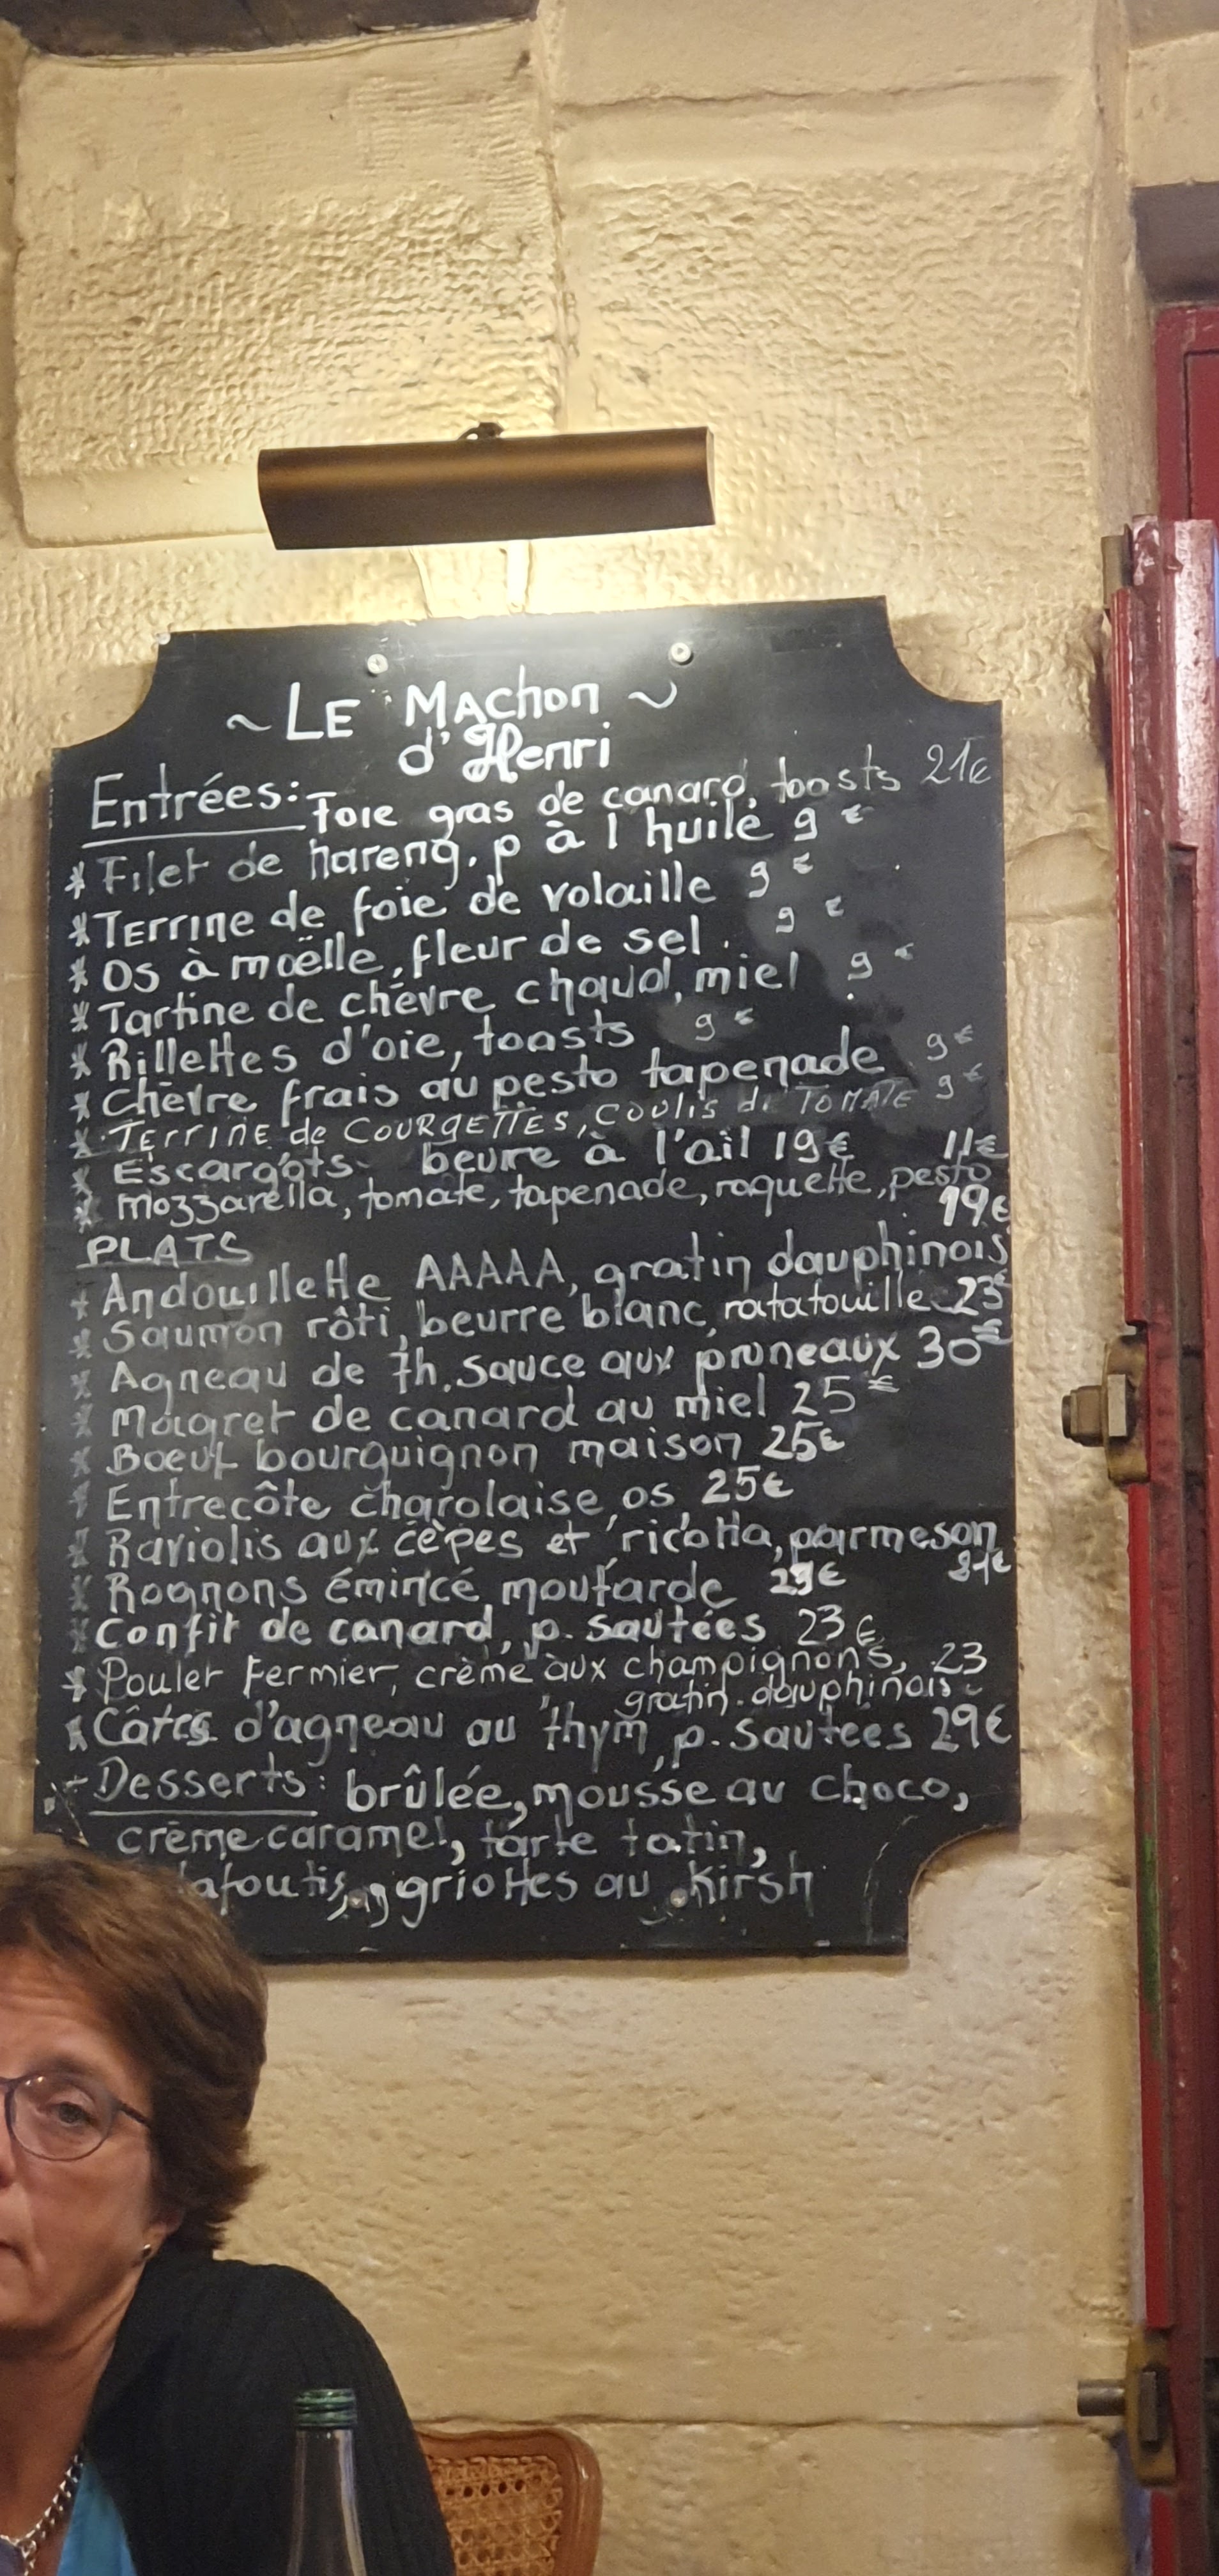 ~ LE MAchon ~
d'Henri
Entrées: Foie gras de canard, toasts 21€
* Filet de hareng, p à l huile 9 €
* TErrine de foie de volaille 9 €
* Os à moëlle, fleur de sel. 9 €
* Tartine de chèvre chaud, miel 9 €
* Rillettes d'oie, toasts 9 €
* Chèvre frais au pesto tapenade 9€
* TERRINE de COURGETTES, COULIS de TOMATE 9€
* Escargots beurre à l'ail 19€ 11€
* mozzarella, tomate, tapenade, roquette, pesto
PLATS 19€
* Andouillette AAAAA, gratin dauphinois
* Saumon rôti, beurre blanc, ratatouille 23€
* Agneau de 7h. sauce aux pruneaux 30€
* Magret de canard au miel 25€
* Boeuf bourguignon maison 25€
* Entrecôte charolaise, os 25€
* Raviolis aux cèpes et ricotta, parmeson
* Rognons émincé, moutarde 21€
* Confit de canard, p. sautées 23€
* Poulet Fermier, crème aux champignons, 23
gratin dauphinois
* Côtes d'agneau au thym, p. sautees 29€
Desserts: brûlée, mousse au choco,
crème caramel, tarte tatin,
afoutis, griottes au Kirsh